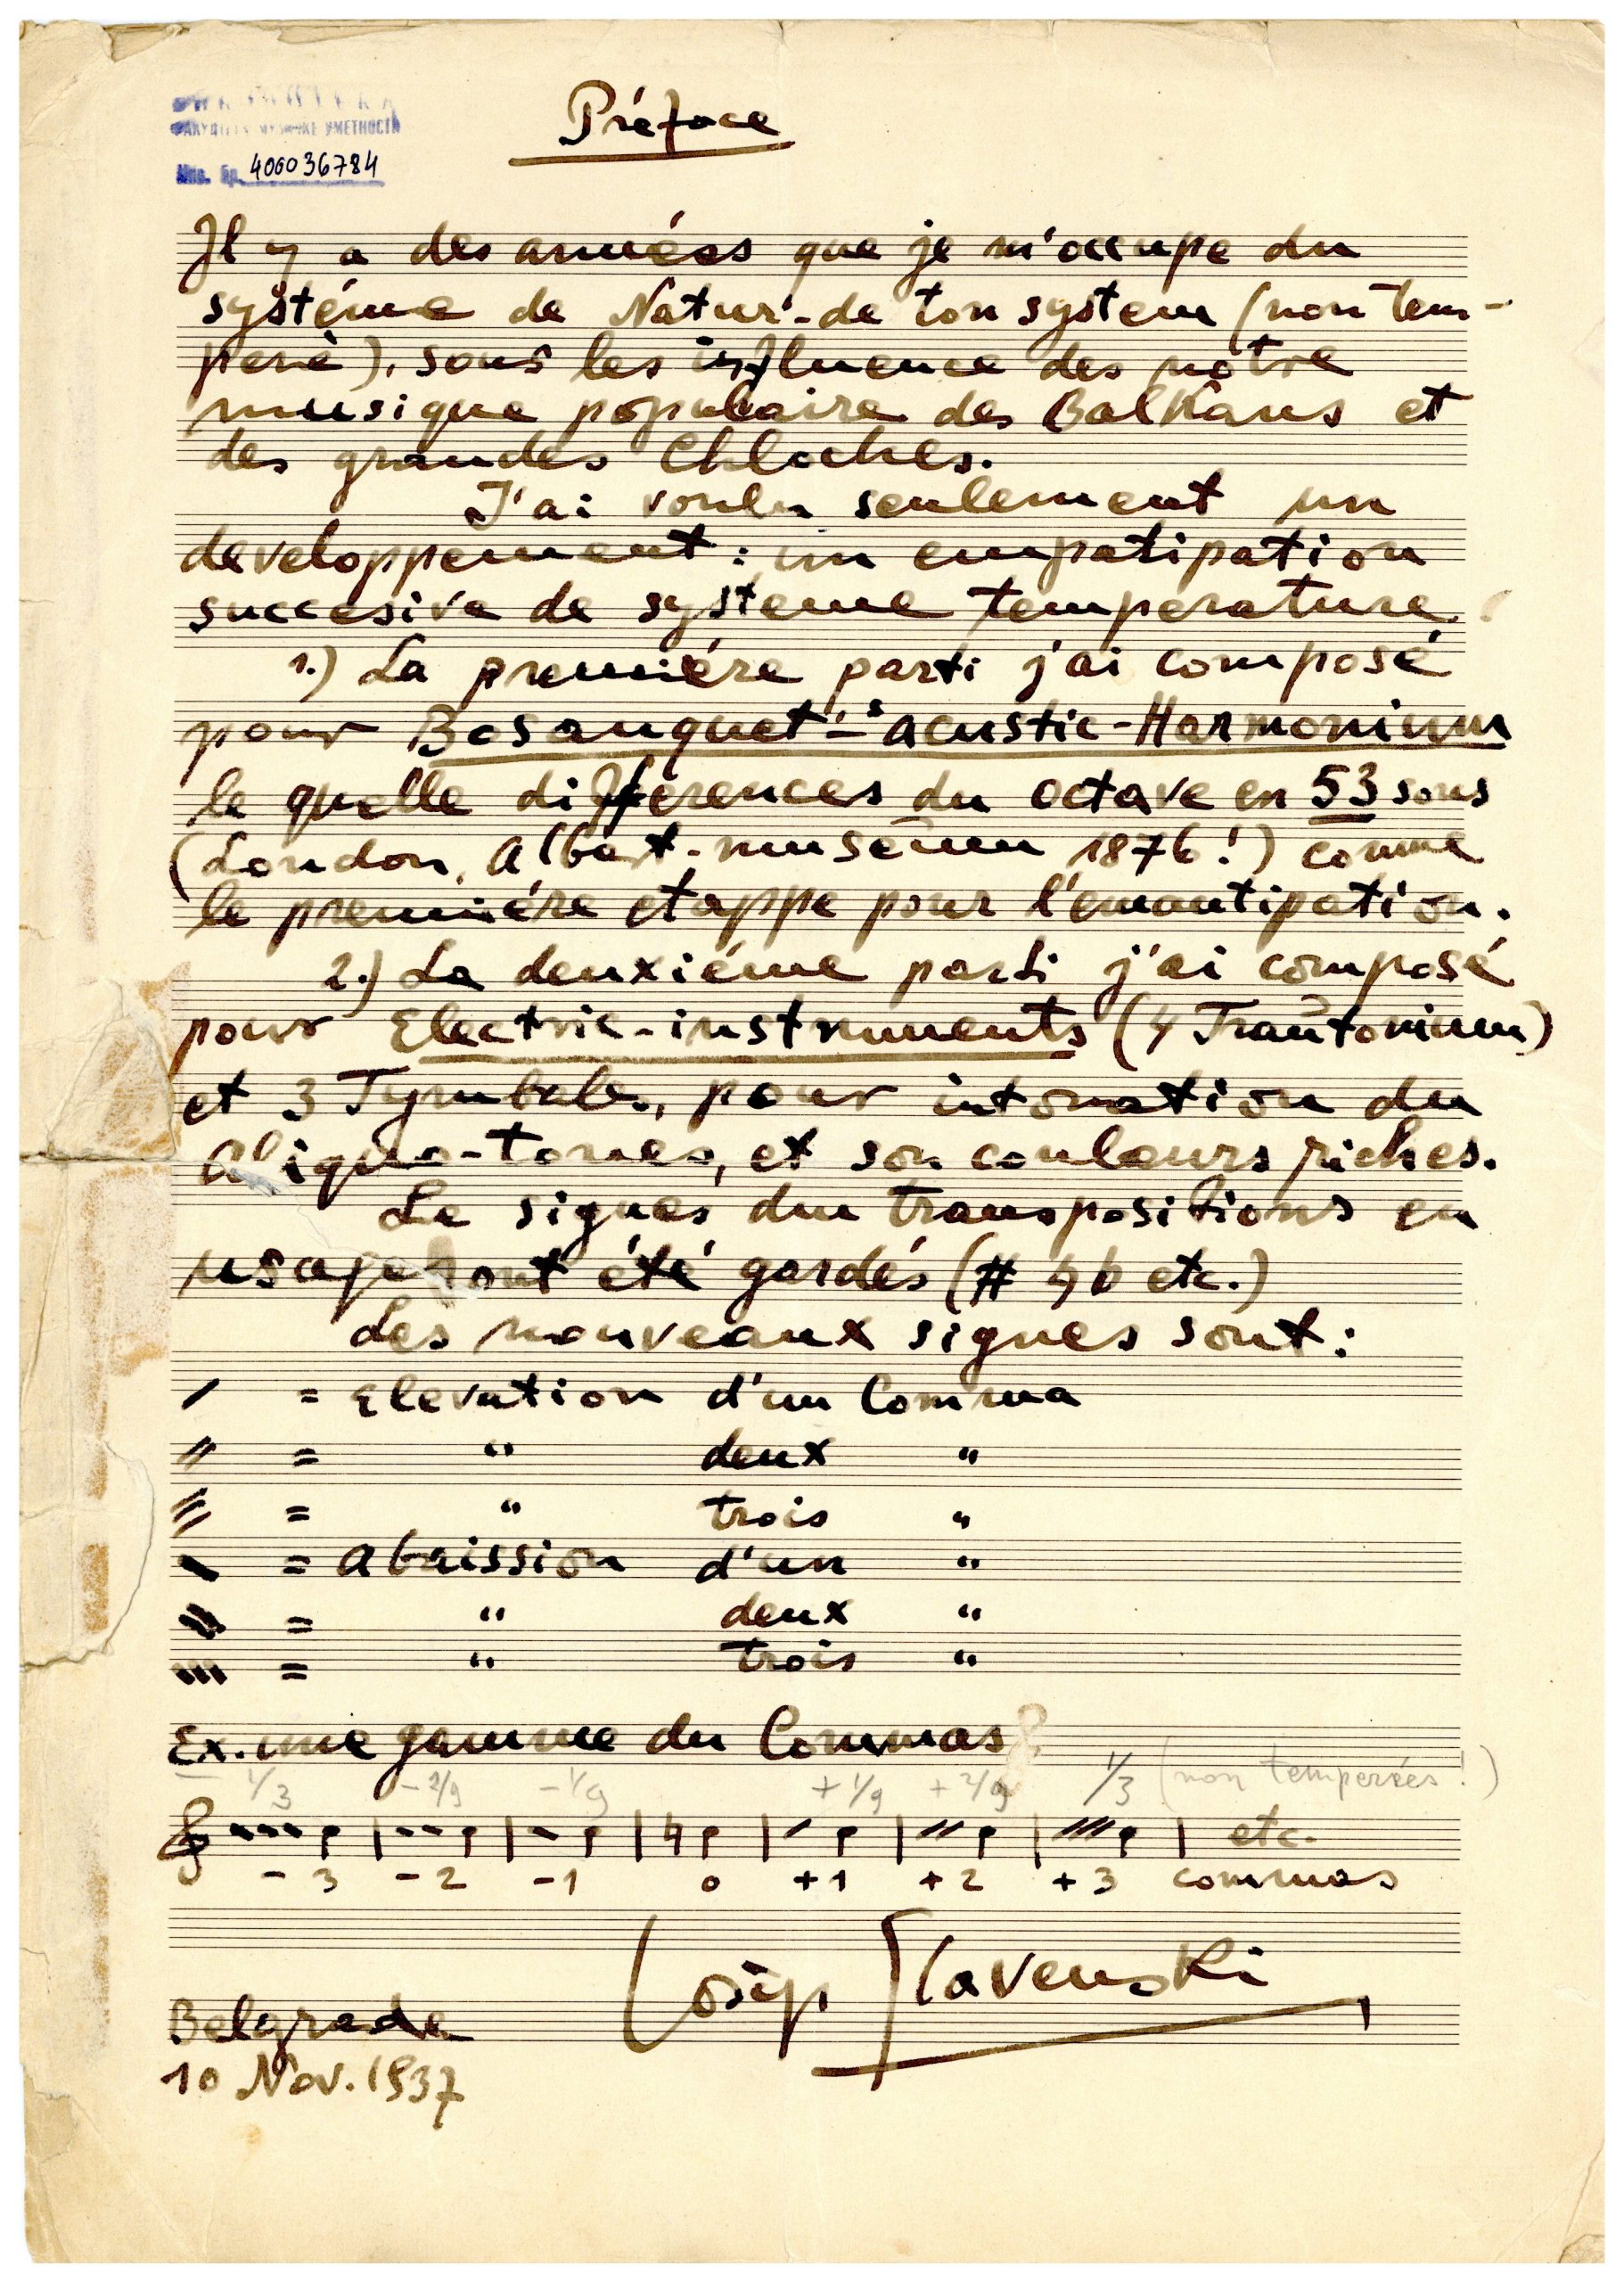 Préface
ФАКУЛТЕТА МУЗИЧКЕ УМЕТНОСТИ
Инв. бр. 400036784
Il y a des années que je m'occupe du
systéme de Natur-de ton system (non tem-
peré), sous les influence des notre
musique populaire des Balkans et
des grandes Chloches.
J'ai voulu seulement un
developpement: un empatipation
succesive de systeme temperature
1.) La premiére parti j'ai composé
pour Bosanquet's acustic-Harmonium
le quelle differences du octave en 53 sons
(London, Albert-museum 1876!) comme
le premiére etappe pour l'emantipation.
2.) La deuxiéme parti j'ai composé
pour Electric-instruments (4 Trautonium)
et 3 Tymbales, pour intonation du
aliquo-tones, et son couleurs riches.
Le signes du transpositions en
usage sont été gardés (# ♮ b etc.)
Les nouveaux signes sont:
/ = Elevation d'un Comma
// = " deux "
/// = " trois "
\ = abaission d'un "
\\ = " deux "
\\\ = " trois "
Ex. une gamme du Commas
1/3 - 2/9 - 1/9 + 1/9 + 2/9 1/3 (non temperées!)
etc.
- 3 - 2 - 1 0 + 1 + 2 + 3 commas
Josip Slavenski
Belgrade
10 Nov. 1937